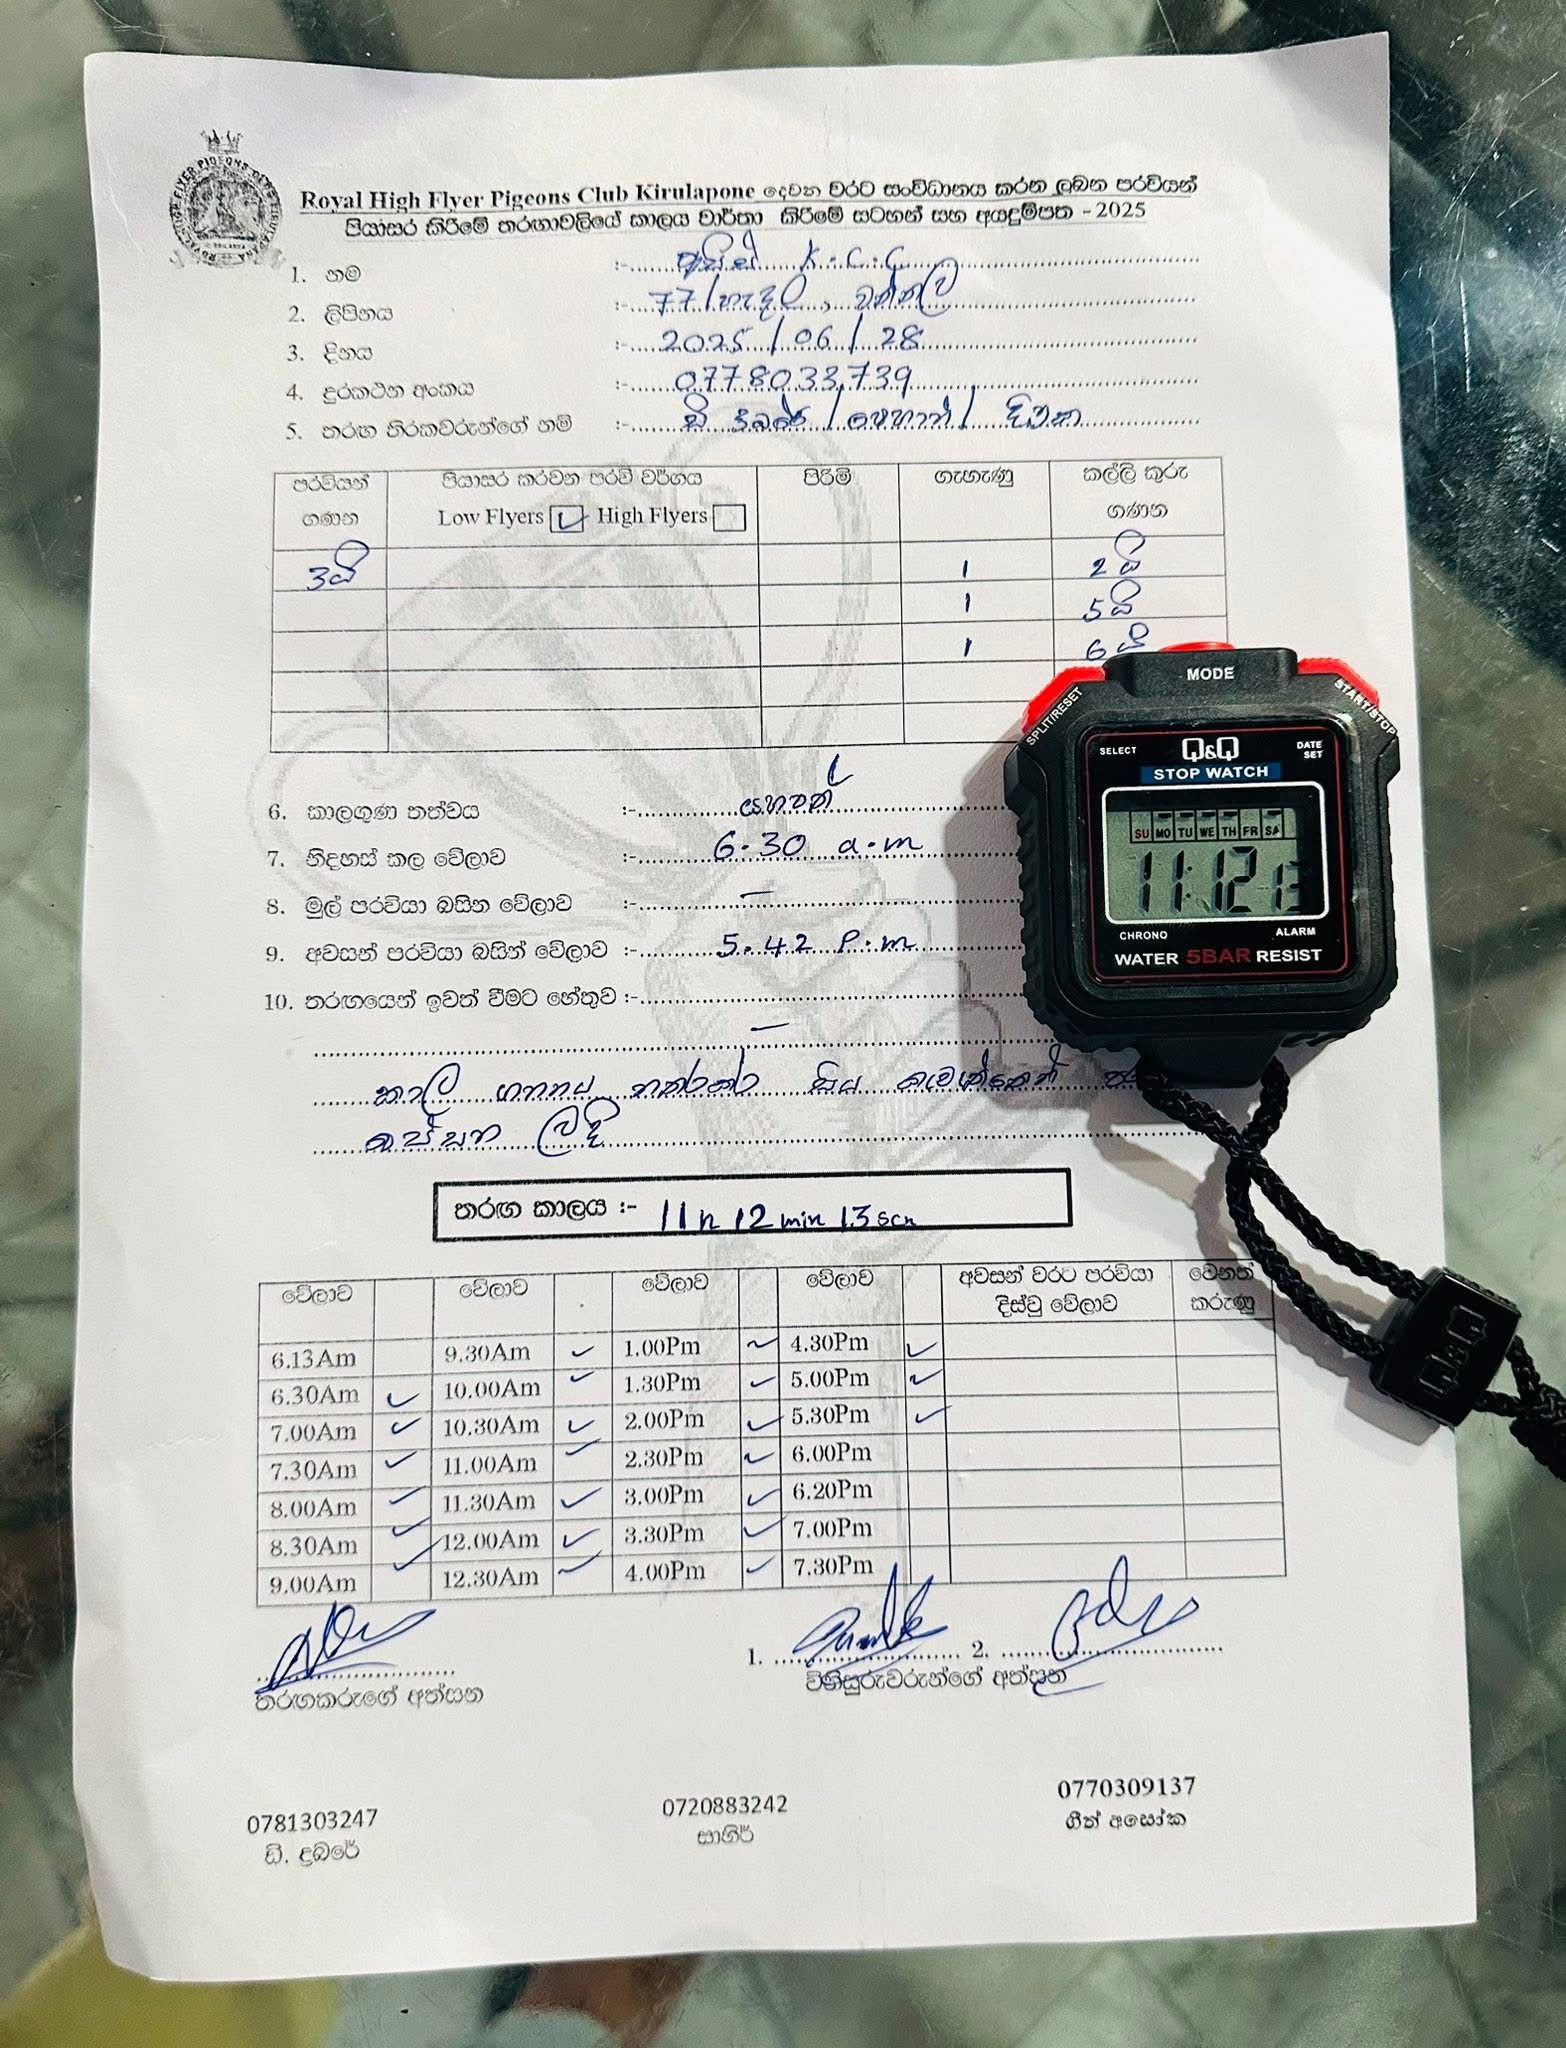 Royal High Flyer Pigeons Club Kirulapone දෙවන වරට සංවිධානය කරන ලබන පරවියන්
පියාසර කිරීමේ තරඟාවලියේ කාලය වාර්තා කිරීමේ සටහන් සහ අයදුම්පත - 2025
1. නම :- K.C.C
2. ලිපිනය :- 77/හැඳල, වත්තල
3. දිනය :- 2025/06/28
4. දුරකථන අංකය :- 0778033739
5. තරඟ තිරකවරුන්ගේ නම් :-
පරවියන් ගණන පියාසර කරවන පරවි වර්ගය Low Flyers ✓ High Flyers පිරිමි ගැහැණු කල්ලි කුරු ගණන
3යි 1 2යි
1 5යි
1 6යි
6. කාලගුණ තත්වය :- යහපත්
7. නිදහස් කල වේලාව :- 6.30 a.m
8. මුල් පරවියා බසින වේලාව :- –
9. අවසන් පරවියා බසින් වේලාව :- 5.42 P.m
10. තරඟයෙන් ඉවත් වීමට හේතුව :- –
කාල ගනනය
තරඟ කාලය :- 11h 12 min 13 scn
වේලාව වේලාව වේලාව වේලාව අවසන් වරට පරවියා දිස්වු වේලාව වෙනත් කරුණු
6.13Am 9.30Am ✓ 1.00Pm ✓ 4.30Pm ✓
6.30Am ✓ 10.00Am ✓ 1.30Pm ✓ 5.00Pm ✓
7.00Am ✓ 10.30Am ✓ 2.00Pm ✓ 5.30Pm ✓
7.30Am ✓ 11.00Am ✓ 2.30Pm ✓ 6.00Pm
8.00Am ✓ 11.30Am ✓ 3.00Pm ✓ 6.20Pm
8.30Am ✓ 12.00Am ✓ 3.30Pm ✓ 7.00Pm
9.00Am ✓ 12.30Am ✓ 4.00Pm ✓ 7.30Pm
1. 2.
තරඟකරුගේ අත්සන විනිසුරුවරුන්ගේ අත්සන
0781303247 0720883242 0770309137
ඩි. ද්‍රබරේ සාගිර් ගීත් අසෝක
MODE
SPLIT/RESET START/STOP
SELECT Q&Q DATE SET
STOP WATCH
SU MO TU WE TH FR SA
11:12 13
CHRONO ALARM
WATER 5BAR RESIST
Q&Q